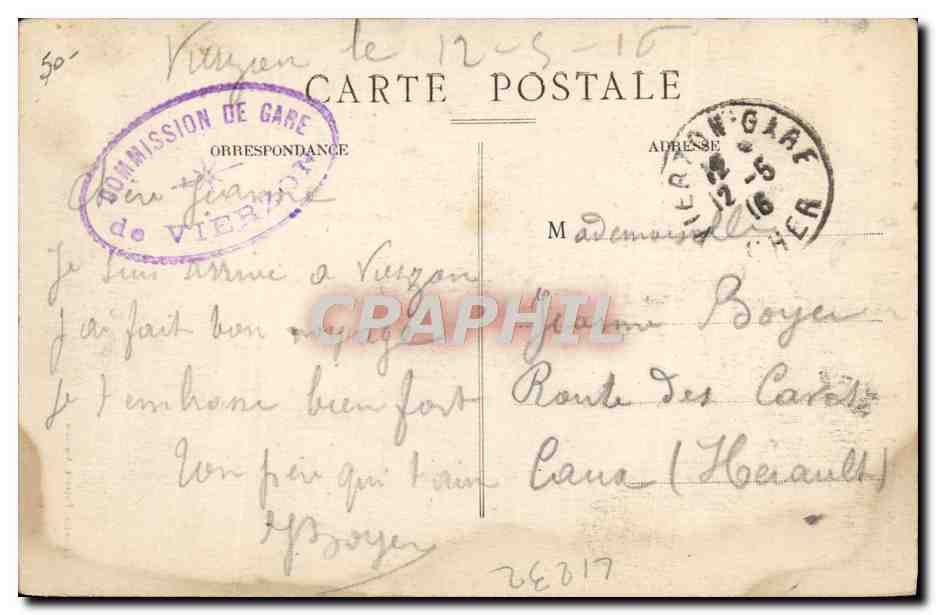 50-
Vierzon le 12-5-16
CARTE POSTALE
COMMISSION DE GARE
de VIERZON
ORRESPONDANCE
ADRESSE
VIERZON-GARE
12 -5
12 16
CHER
Chère Jeanne
Je suis arrivé a Vierzon
J'ai fait bon voyage
Je t'embrasse bien fort
Ton père qui t'aime
Boyer
Mademoiselle
Jeanne Boyer
Route des
Caux (Hérault)
CPAPHIL